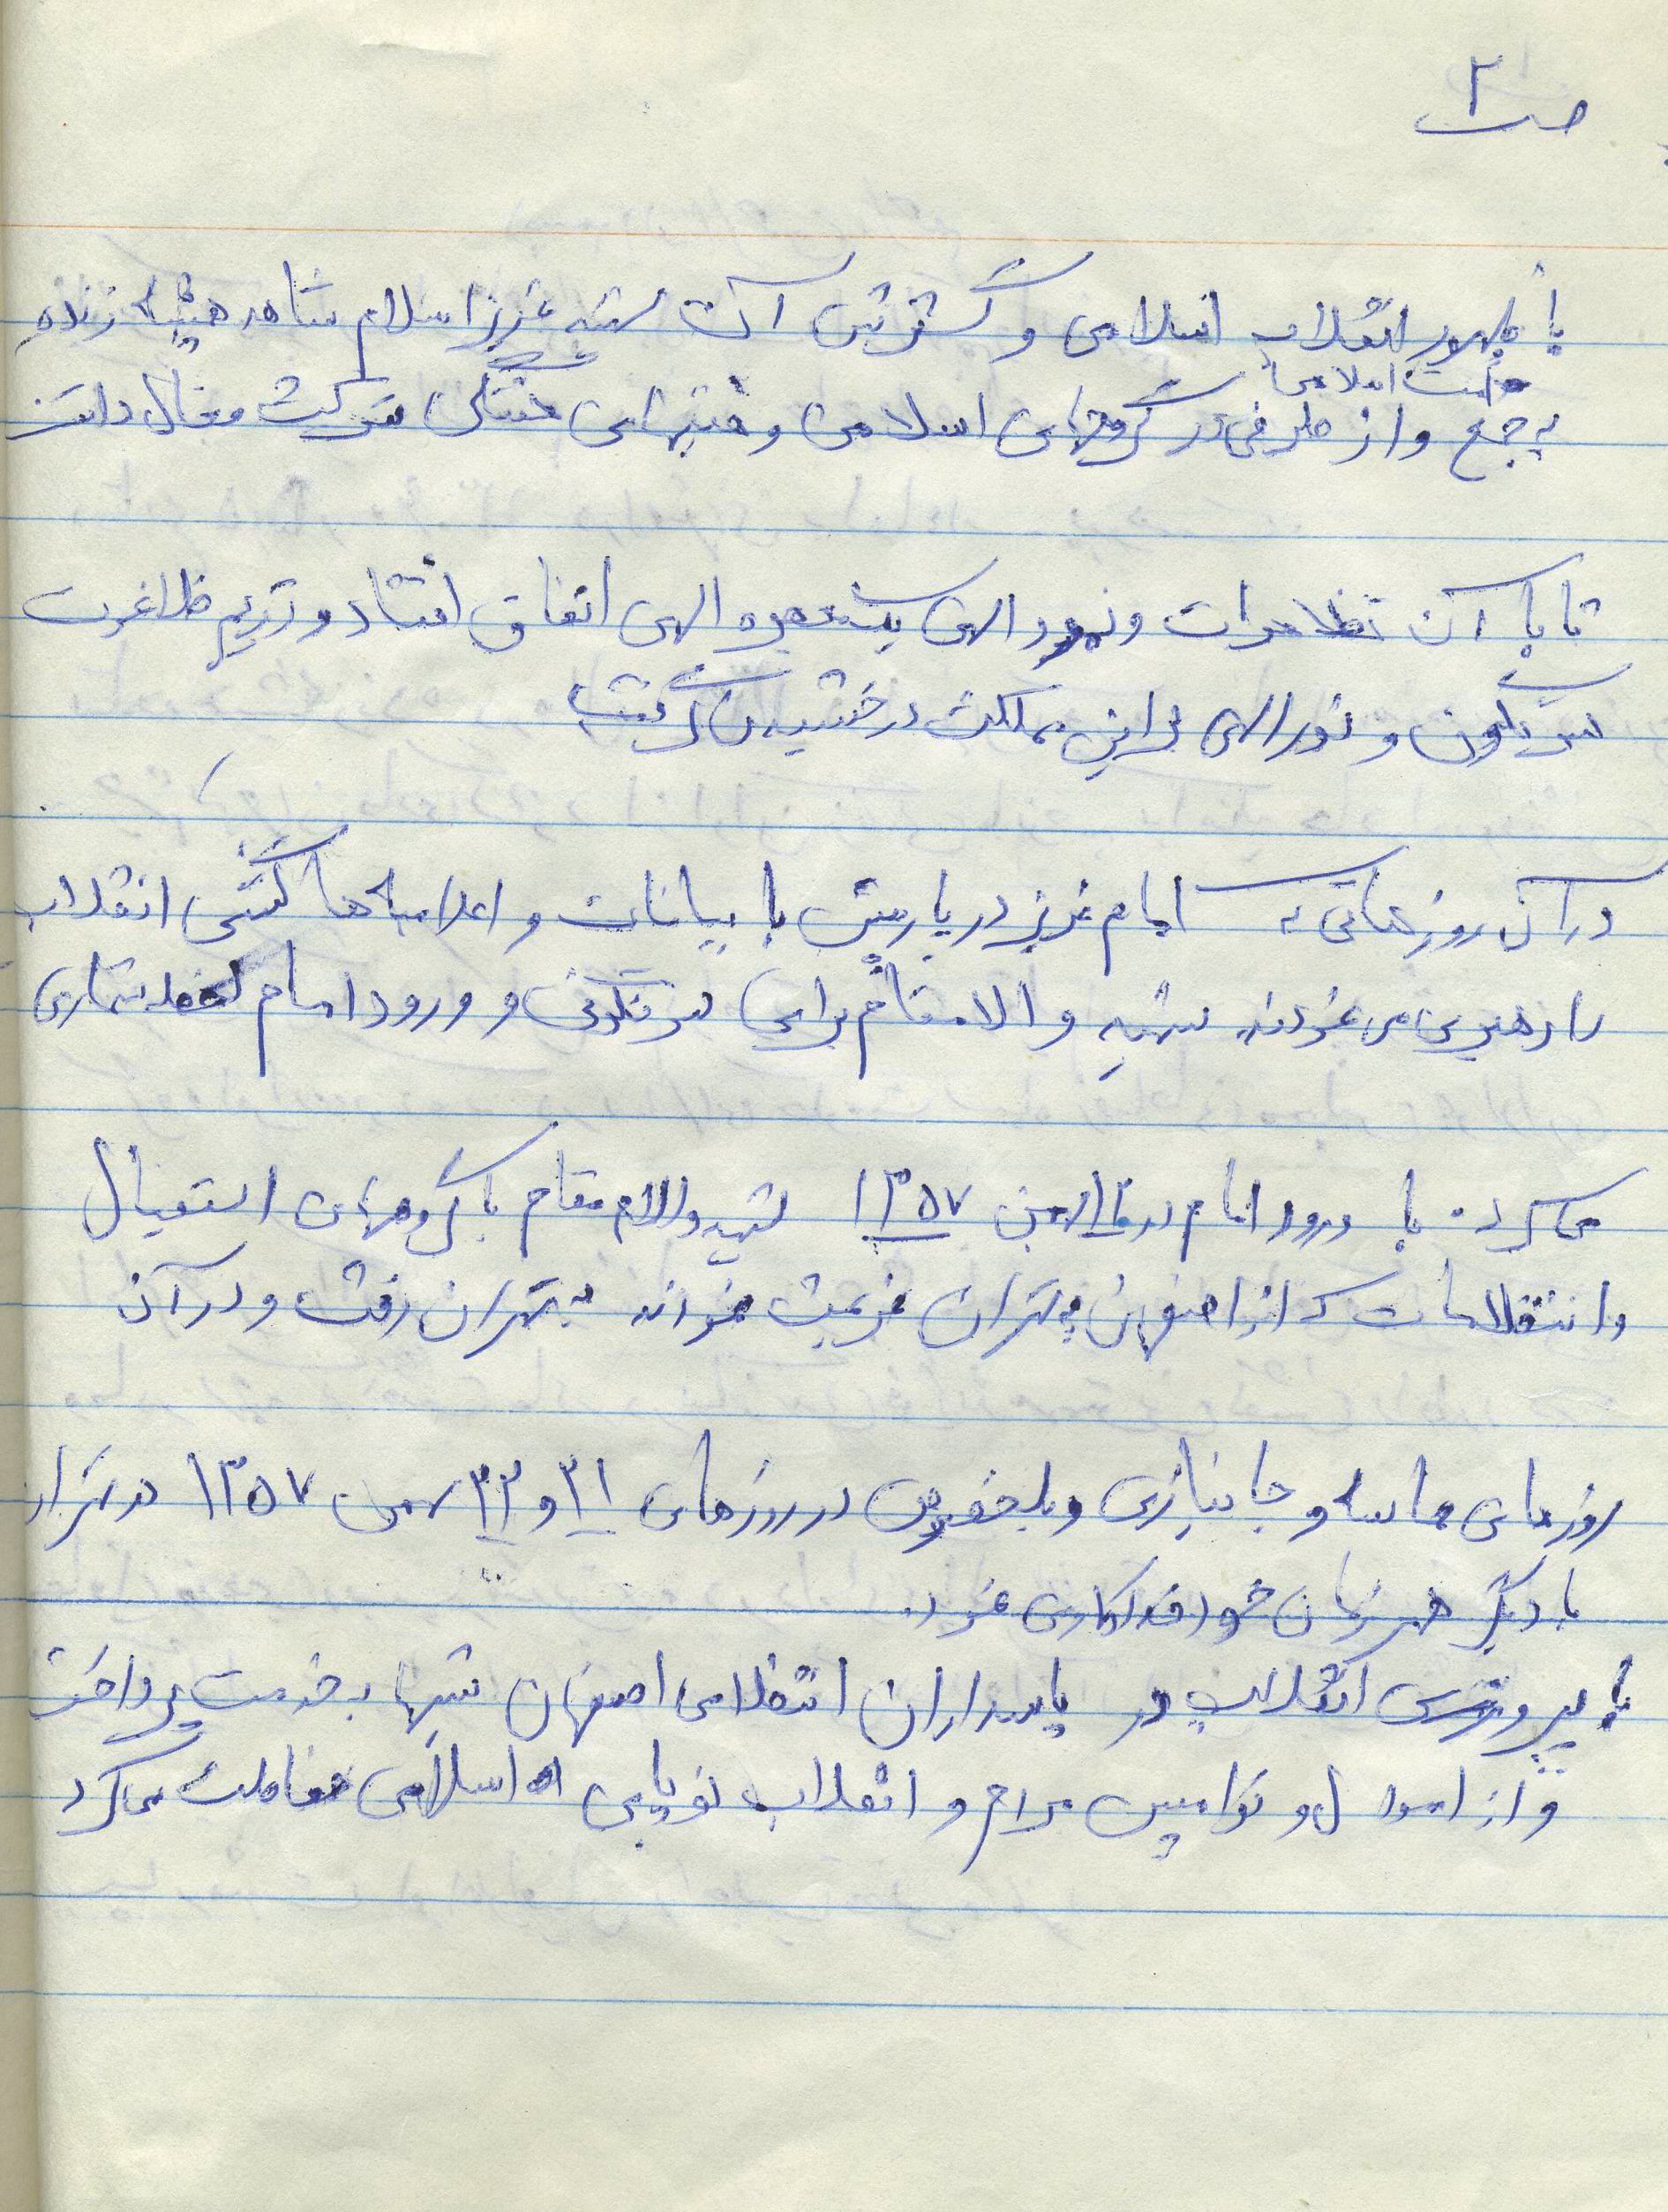 ص ۲
با ظهور انقلاب اسلامی و گسترش آن شهید عزیز اسلام شاهد همیشه زنده
امت اسلامی
به جمع و از طرفی در گروههای اسلامی و شرکت فعال داشت
تا با آن تظاهرات و نمود الهی یک معجزه الهی اتفاق افتاد و رژیم طاغوت
سرنگون و نور الهی بر این مملکت درخشیدن گرفت
در آن روزهائی که امام عزیز در پاریس با بیانات و اعلامیه ها کشتی انقلاب
را رهبری می نمودند شهید والامقام برای سرنگونی و ورود امام لحظه شماری
میکرد. با ورود امام در ۱۲ بهمن ۱۳۵۷ شهید والامقام با گروههای استقبال
و انتظامات که از اصفهان به تهران عزیمت نمودند به تهران رفت و در آن
روزهای حماسه و جانبازی و بلخصوص در روزهای ۲۱ و ۲۲ بهمن ۱۳۵۷ در تهران
با دیگر همرزمان خود فداکاری نمود.
با پیروزی انقلاب در پاسداران انتظامی اصفهان شبها به خدمت پرداخت
و از اموال و نوامیس مردم و انقلاب نوپای اسلامی محافظت میکرد